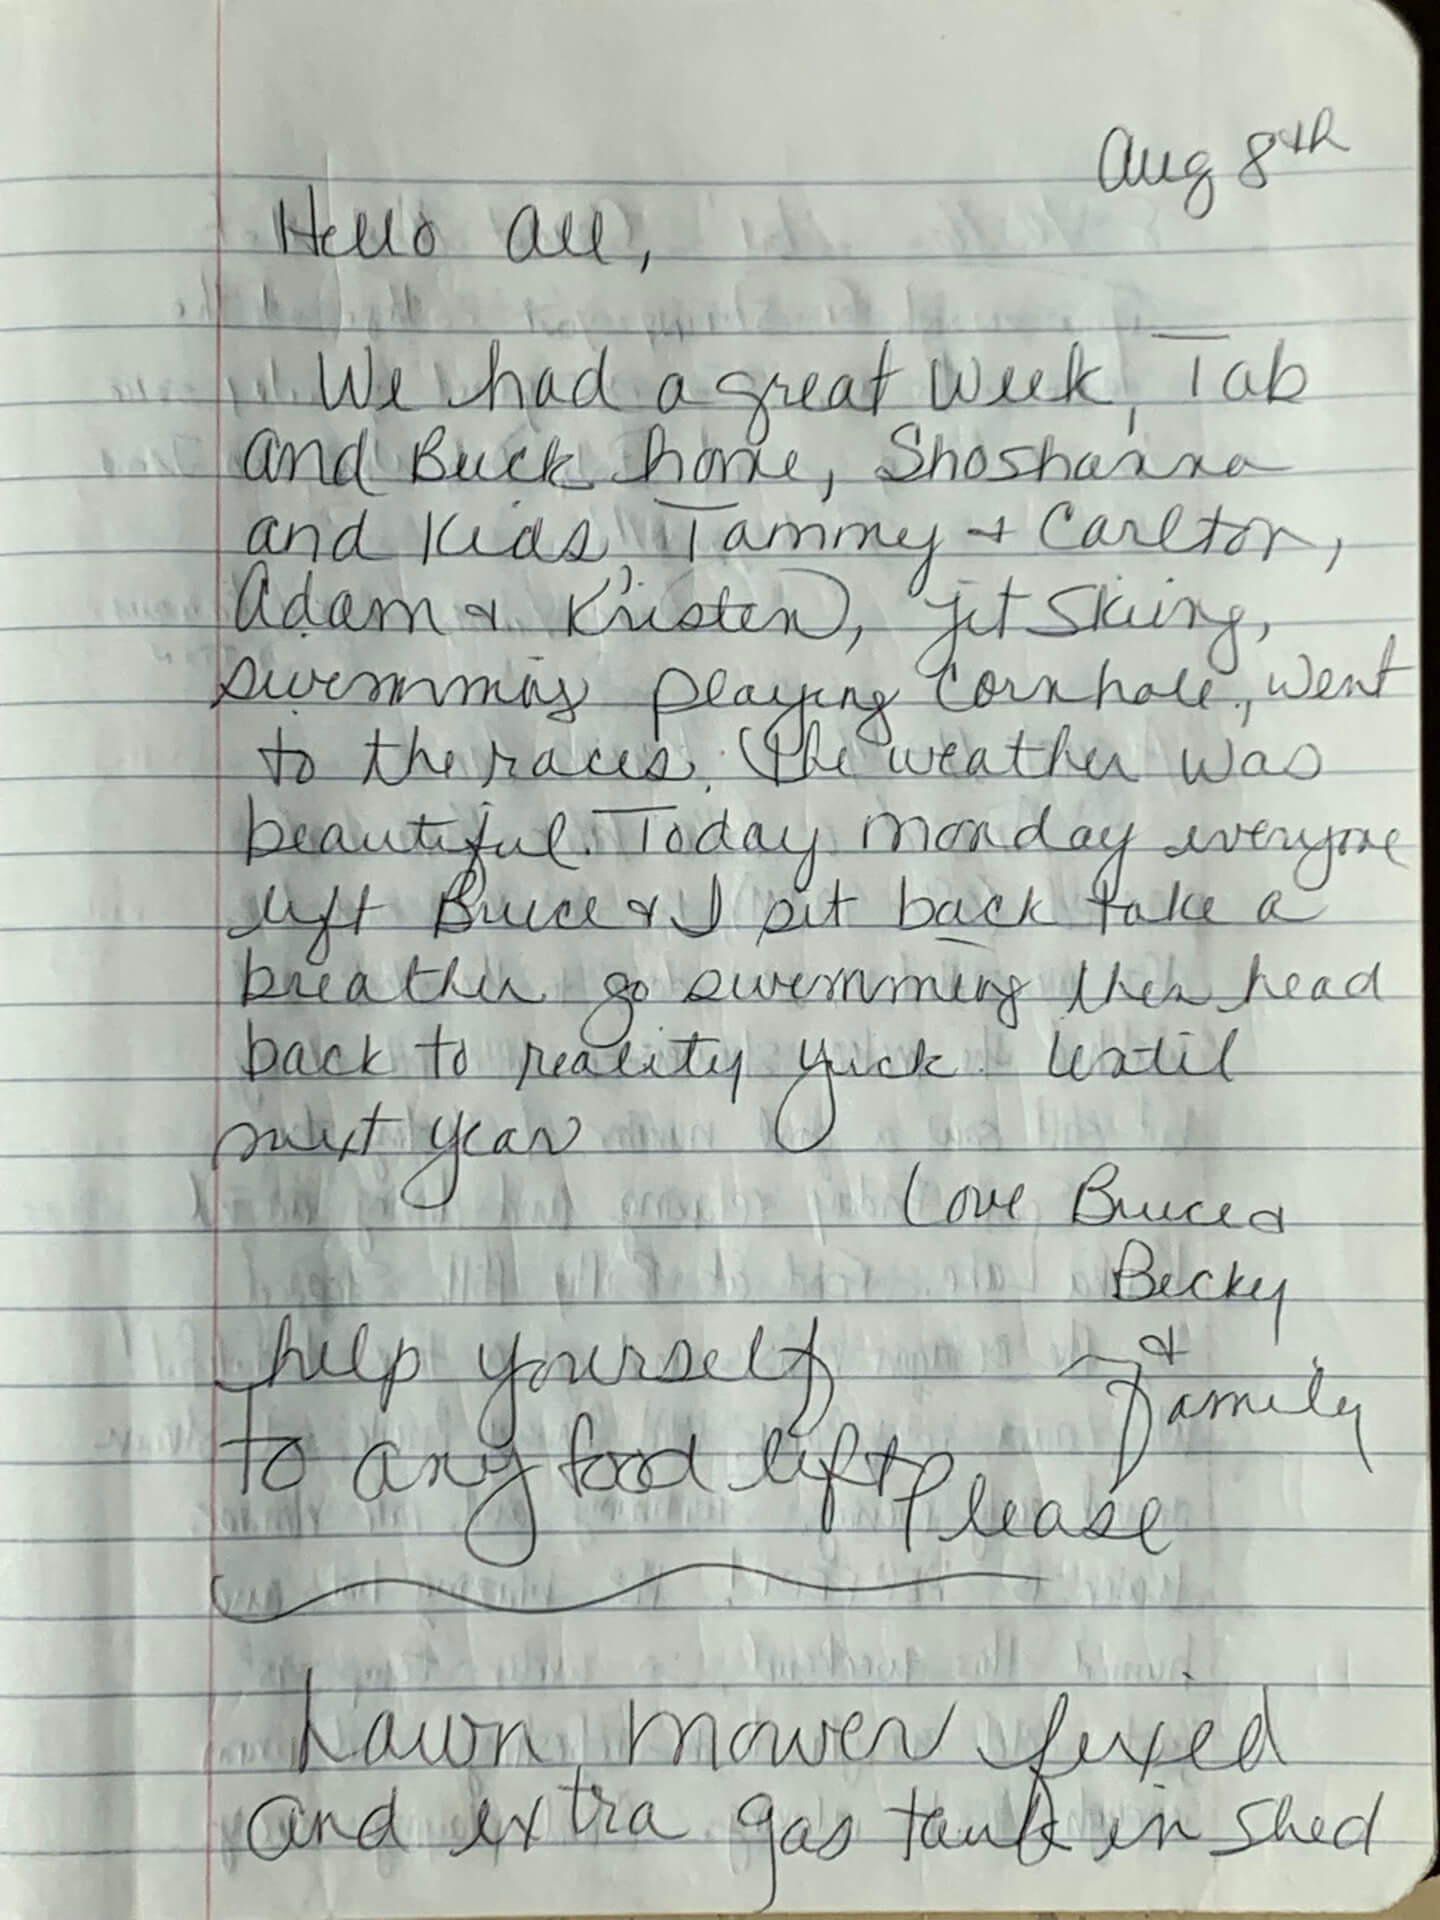 Aug 8th
Hello all,
We had a great week, Tab
and Buck home, Shoshanna
and Kids, Tammy + Carlton,
Adam & Kristen, jet skiing,
swimming playing cornhole, went
to the races. The weather was
beautiful. Today Monday everyone
left Bruce & I sit back take a
breather go swimming then head
back to reality yuck. Until
next year
Love Bruce &
Becky
&
Family
help yourself
to any food left Please
Lawn mower fixed
and extra gas tank in shed